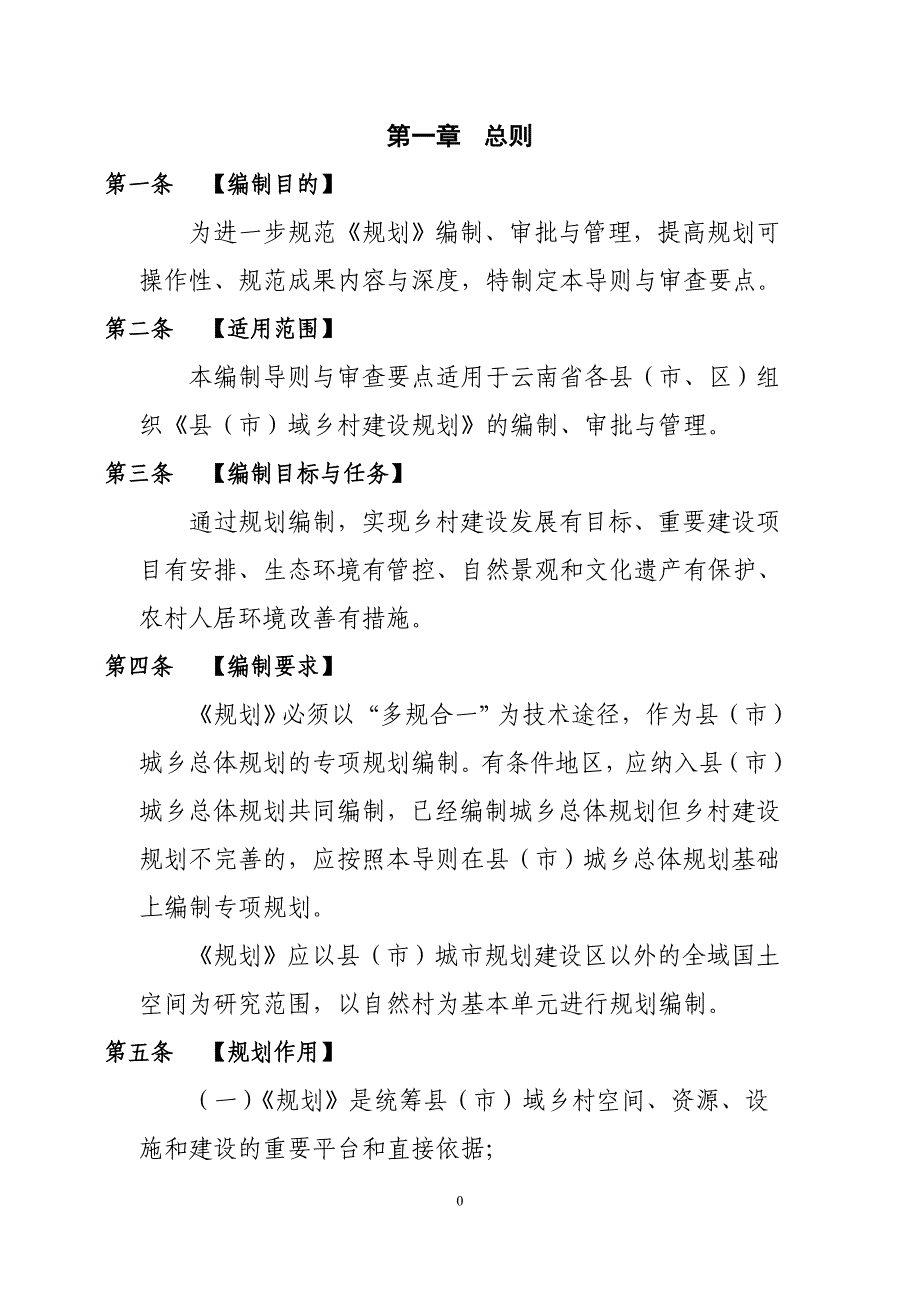 第一章　总则
第一条　【编制目的】
为进一步规范《规划》编制、审批与管理，提高规划可
操作性、规范成果内容与深度，特制定本导则与审查要点。
第二条　【适用范围】
本编制导则与审查要点适用于云南省各县（市、区）组
织《县（市）域乡村建设规划》的编制、审批与管理。
第三条　【编制目标与任务】
通过规划编制，实现乡村建设发展有目标、重要建设项
目有安排、生态环境有管控、自然景观和文化遗产有保护、
农村人居环境改善有措施。
第四条　【编制要求】
《规划》必须以“多规合一”为技术途径，作为县（市）
城乡总体规划的专项规划编制。有条件地区，应纳入县（市）
城乡总体规划共同编制，已经编制城乡总体规划但乡村建设
规划不完善的，应按照本导则在县（市）城乡总体规划基础
上编制专项规划。
《规划》应以县（市）城市规划建设区以外的全域国土
空间为研究范围，以自然村为基本单元进行规划编制。
第五条　【规划作用】
（一）《规划》是统筹县（市）域乡村空间、资源、设
施和建设的重要平台和直接依据；
0